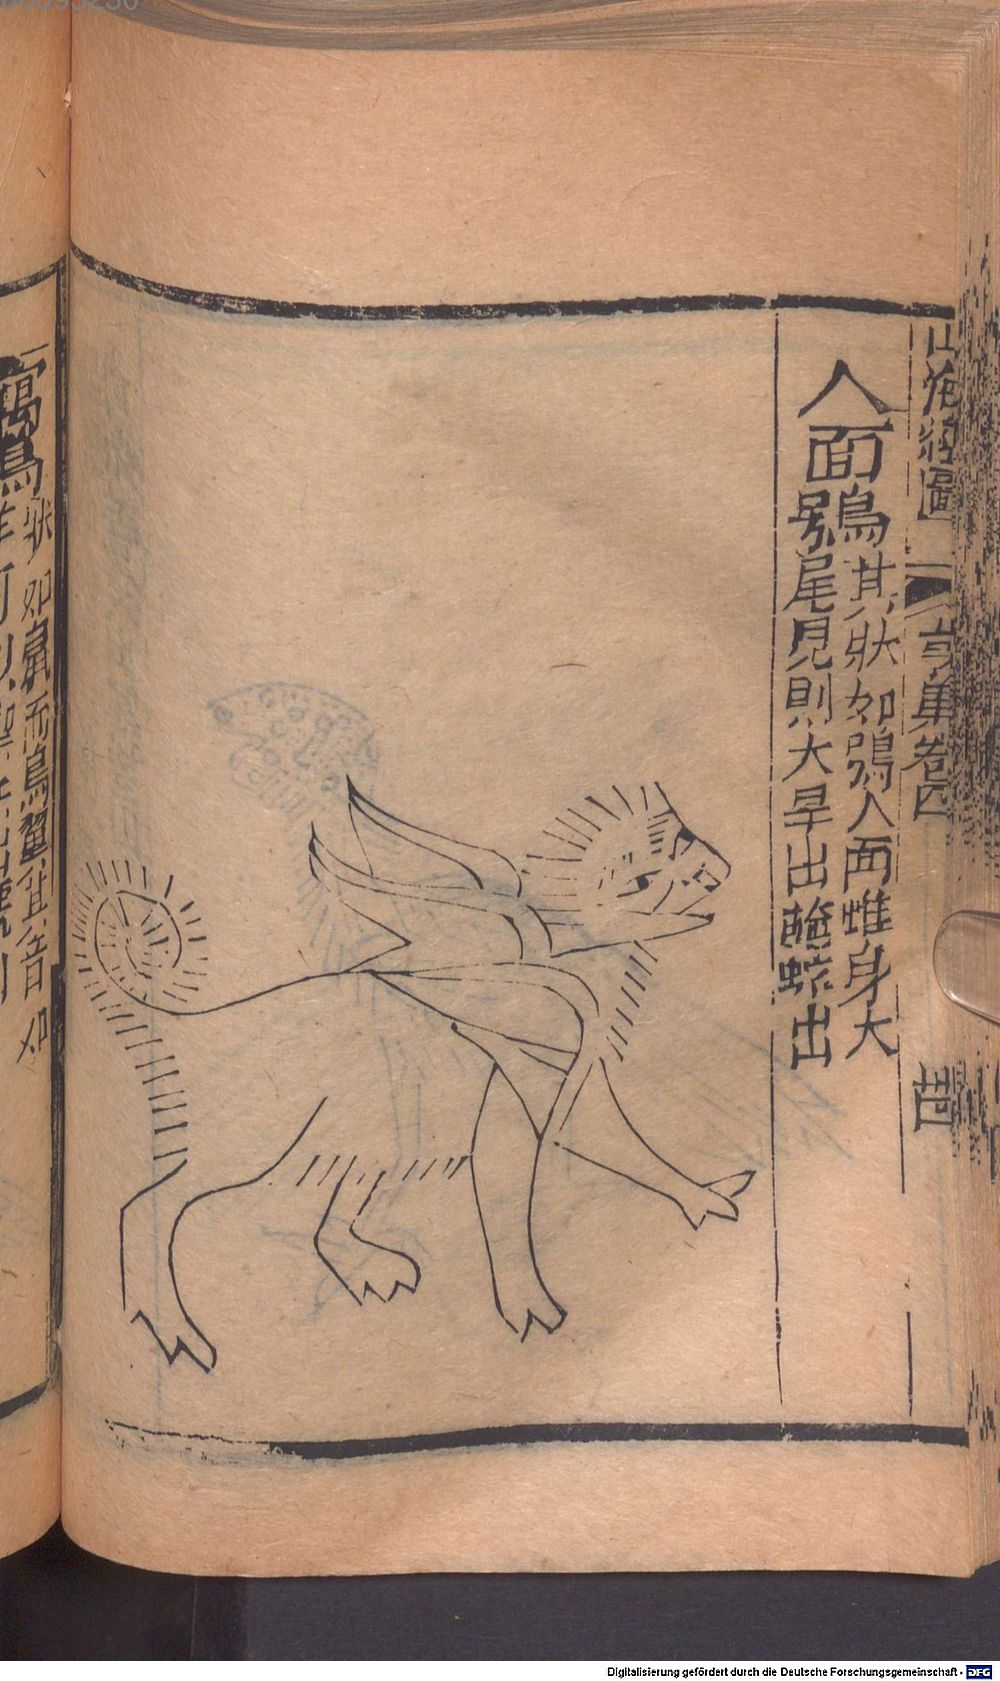 山海經圖
卷四
人面鴞
其狀如鴞人面蜼身大
尾見則大旱出出
寓鳥
狀如鼠而鳥翼其音如
羊可以禦兵
Digitalisierung gefördert durch die Deutsche Forschungsgemeinschaft - DFG